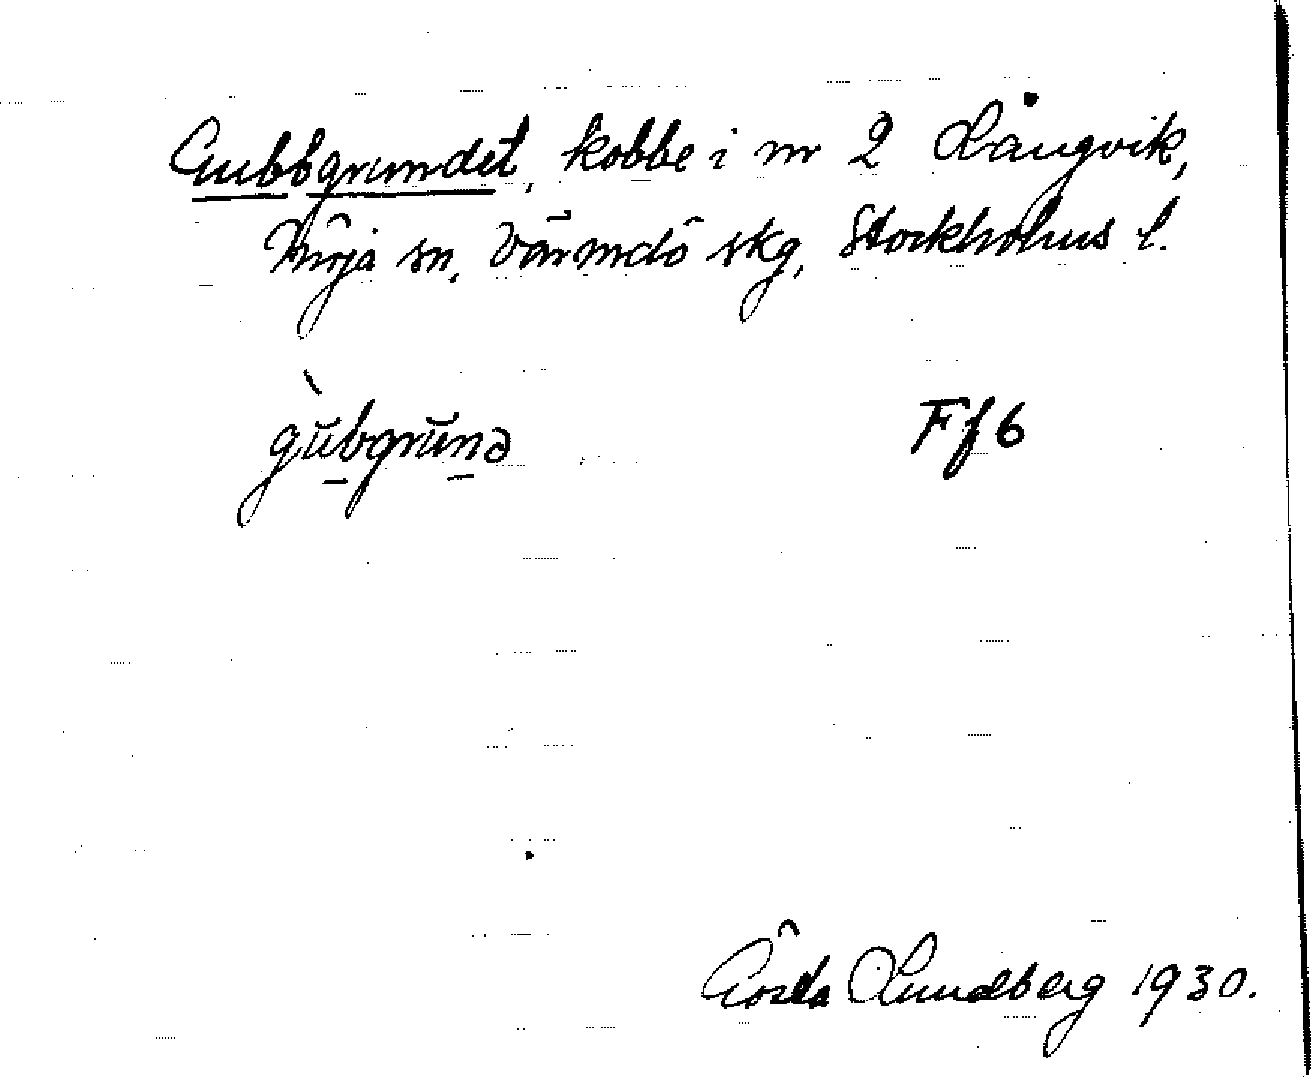 Gubbgrundet, kobbe i nr 2 Långvik,
Möja sn, Värmdö skg, Stockholms l.
gùbgrunə
Ff6
Gösta Lundberg 1930.